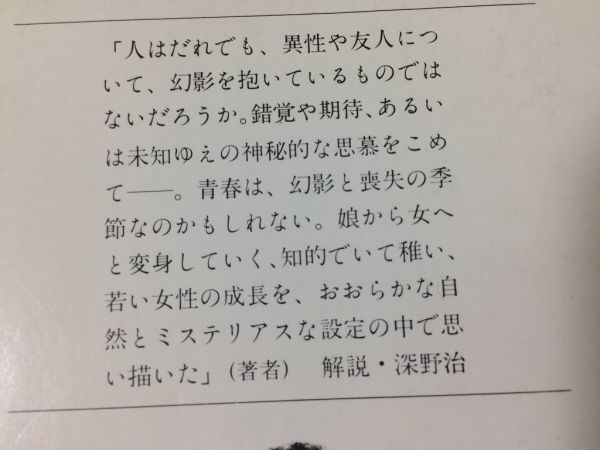 「人はだれでも、異性や友人につ
いて、幻影を抱いているものでは
ないだろうか。錯覚や期待、あるい
は未知ゆえの神秘的な思慕をこめ
て――。青春は、幻影と喪失の季
節なのかもしれない。娘から女へ
と変身していく、知的でいて稚い、
若い女性の成長を、おおらかな自
然とミステリアスな設定の中で思
い描いた」(著者)　解説・深野治